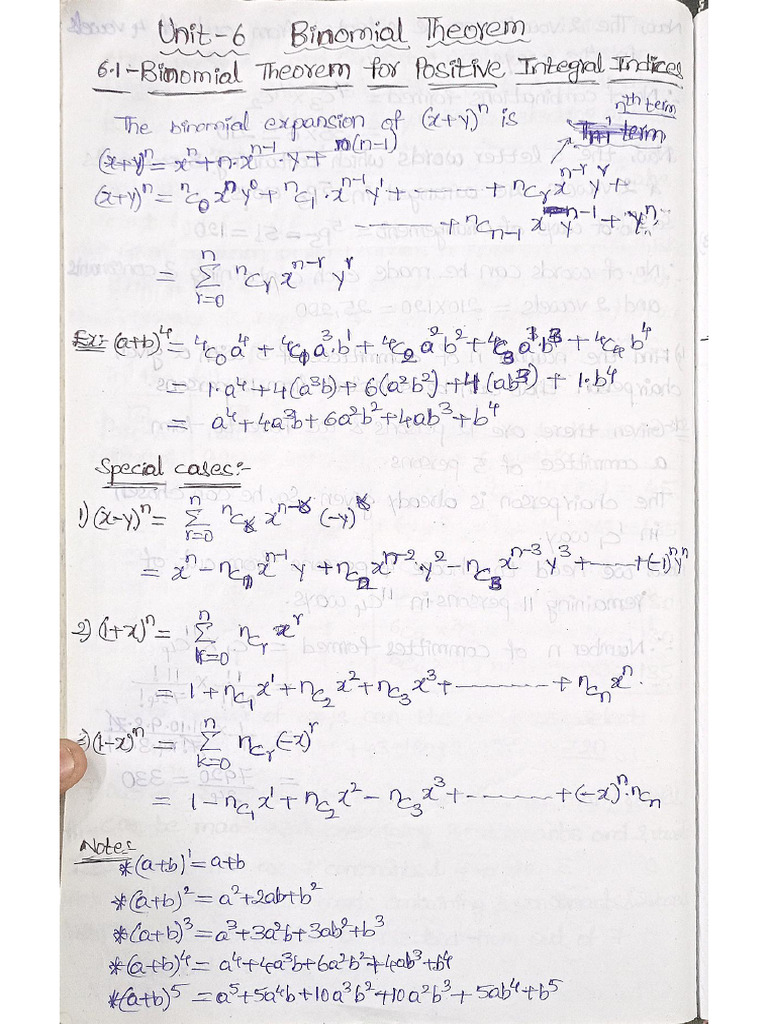 Unit-6 Binomial Theorem
6.1-Binomial Theorem for Positive Integral Indices
The binomial expansion of (x+y)ⁿ is
nth term
(x+y)ⁿ = xⁿ + n·xⁿ⁻¹·y + n(n-1)
(x+y)ⁿ = ⁿC₀xⁿy⁰ + ⁿC₁·xⁿ⁻¹y¹ + ------ + ⁿCᵣxⁿ⁻ʳyʳ +
------ + ⁿCₙ₋₁ x yⁿ⁻¹ + yⁿ
= Σ(r=0 to n) ⁿCᵣxⁿ⁻ʳyʳ
Ex:- (a+b)⁴ = ⁴C₀a⁴ + ⁴C₁a³·b¹ + ⁴C₂a²b² + ⁴C₃a¹b³ + ⁴C₄b⁴
= 1·a⁴ + 4(a³b) + 6(a²b²) + 4(ab³) + 1·b⁴
= a⁴+4a³b+6a²b²+4ab³+b⁴
Special cases:-
1) (x-y)ⁿ = Σ(r=0 to n) ⁿC xⁿ⁻ (-y)
= xⁿ - ⁿC₁xⁿ⁻¹y + ⁿC₂xⁿ⁻²·y² - ⁿC₃xⁿ⁻³y³ + ------ + (-1)ⁿyⁿ
2) (1+x)ⁿ = Σ(k=0 to n) ⁿCᵣ xʳ
= 1 + ⁿC₁x¹ + ⁿC₂x² + ⁿC₃x³ + --------- + ⁿCₙxⁿ.
3) (1-x)ⁿ = Σ(k=0 to n) ⁿCᵣ(-x)ʳ
= 1 - ⁿC₁x¹ + ⁿC₂x² - ⁿC₃x³ + --------- + (-x)ⁿ·ⁿCₙ
Note:
*(a+b)¹ = a+b
*(a+b)² = a²+2ab+b²
*(a+b)³ = a³+3a²b+3ab²+b³
*(a+b)⁴ = a⁴+4a³b+6a²b²+4ab³+b⁴
*(a+b)⁵ = a⁵+5a⁴b+10a³b²+10a²b³+5ab⁴+b⁵